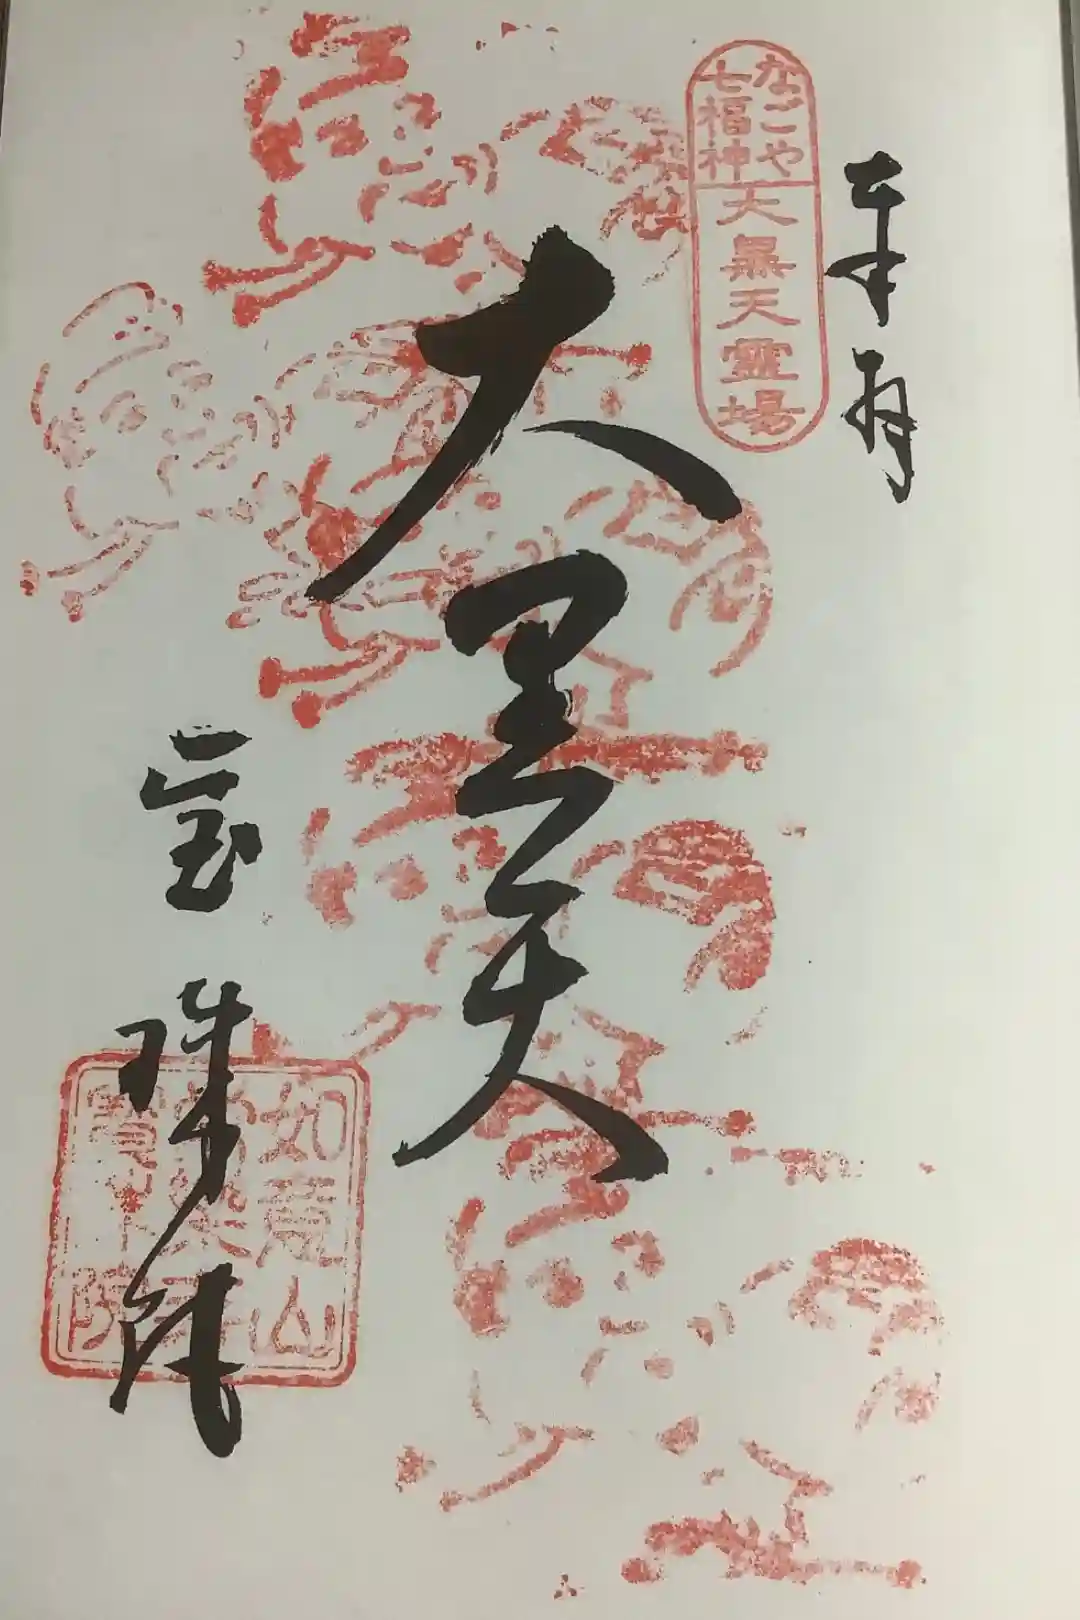 奉拝
なごや
七福神
大黒天霊場
大黒天
宝珠院
如意山
常楽寺
寳珠院